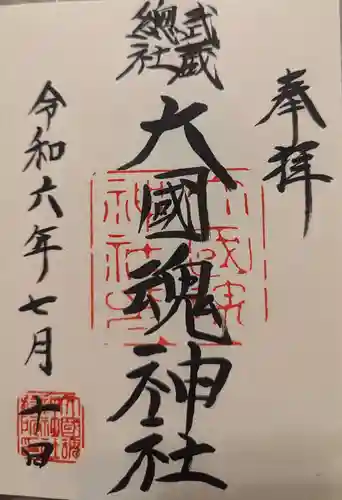 奉拝
武蔵
總社
大國魂神社
令和六年七月十日